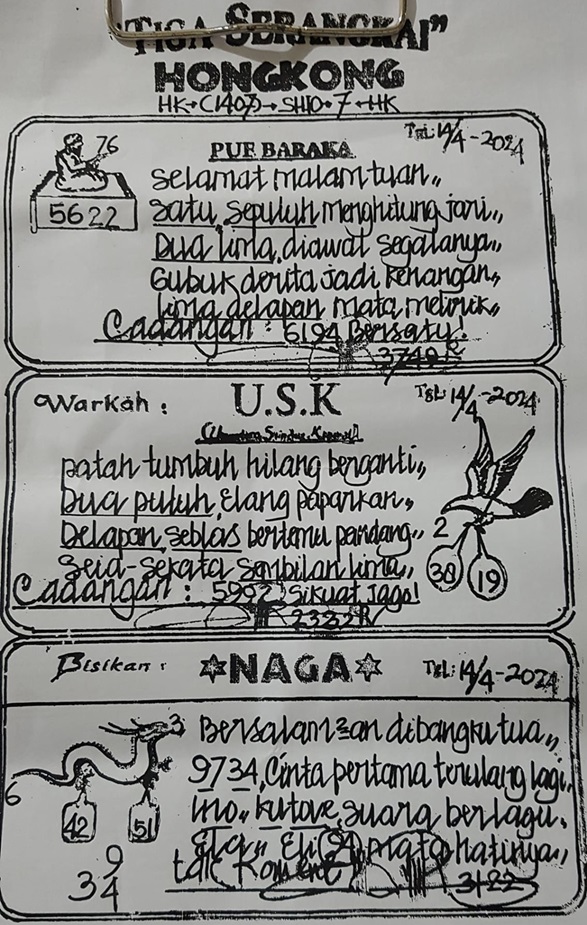 "TIGA SERANGKAI"
HONGKONG
HK→C(1407)→SHIO→7→HK
76
5622
PUF BARAKA
Tgl: 14/4-2024
Selamat malam tuan,,
Satu, sepuluh menghitung jari,,
Dua lima, diawal segalanya,,
Gubuk derita jadi kenangan,,
lima delapan mata melirik,,
Cadangan : 6194 Bersatu!
3749
Warkah :
U.S.K
Tgl: 14/4-2024
patah tumbuh hilang berganti,,
Dua puluh, Elang paparkan,,
Delapan, seblas bertemu pandang,,
Seia-sekata sembilan lima,,
2
38
19
Cadangan : 5992 Sikuat Jago!
2332
Bisikan :
NAGA
Tgl: 14/4-2024
3
6
42
51
9
34
Bersalaman dibangku tua,,
9734, Cinta pertama terulang lagi,
suara berlagu,
94 mata hatinya,,
3122